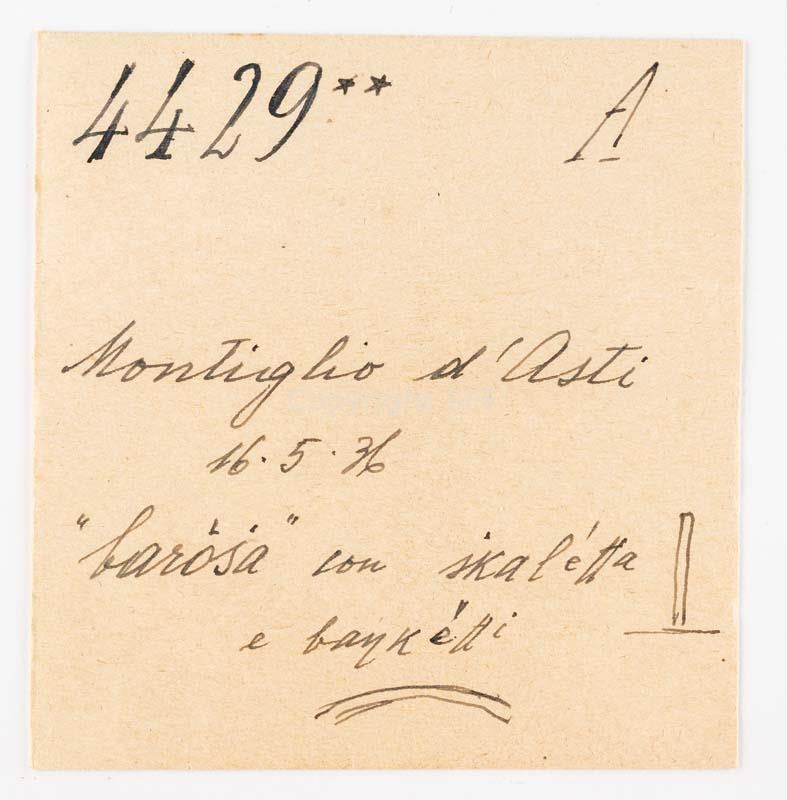 4429** A
Montiglio d'Asti
16.5.36
"baròṡa" con skalétta
e baŋkétti